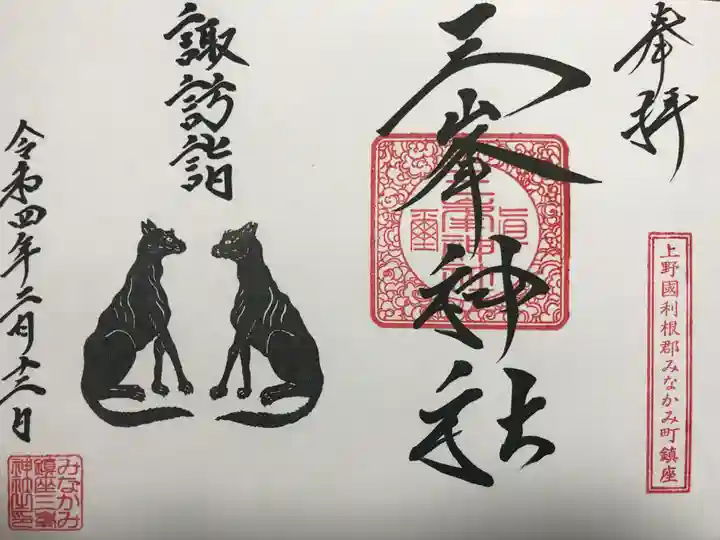 奉拝
上野國利根郡みなかみ町鎮座
三峯神社
諏訪詣
令和四年二月十三日
みなかみ
鎮座三峯
神社之印